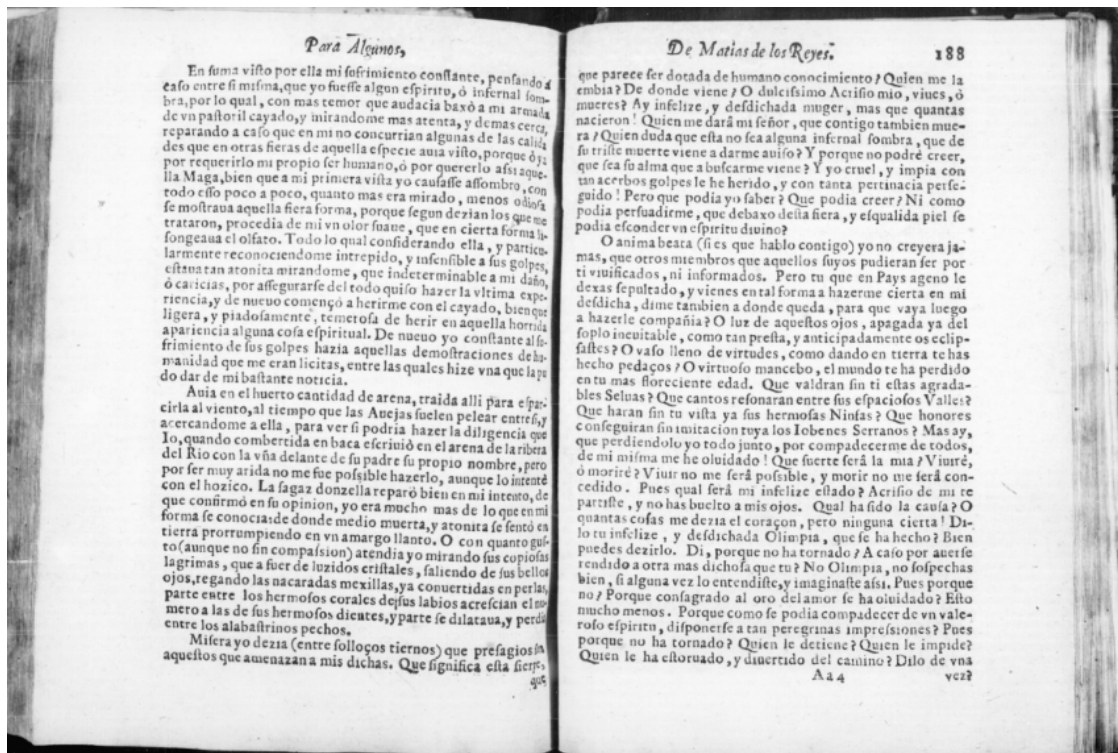 Para Algunos,
En suma visto por ella mi sufrimiento constante, pensando á
caso entre si misma, que yo fuesse algun espiritu, ò infernal som-
bra, por lo qual, con mas temor que audacia baxò a mi armada
de vn pastoril cayado, y mirandome mas atenta, y demas cerca,
reparando a caso que en mi no concurrian algunas de las calida
des que en otras fieras de aquella especie auia visto, porque ò ya
por requerirlo mi propio ser humano, ò por quererlo assi aque-
lla Maga, bien que a mi primera vista yo causasse assombro, con
todo esso poco a poco, quanto mas era mirado, menos odiosa
se mostraua aquella fiera forma, porque segun dezian los que me
trataron, procedia de mi vn olor suaue, que en cierta forma li-
songeaua el olfato. Todo lo qual considerando ella, y particu-
larmente reconociendome intrepido, y insensible a sus golpes,
estaua tan atonita mirandome, que indeterminable a mi daño,
ò caricias, por assegurarse del todo quiso hazer la vltima expe-
riencia, y de nueuo començò a herirme con el cayado, bien que
ligera, y piadosamente, temerosa de herir en aquella horrida
apariencia alguna cosa espiritual. De nueuo yo constante al su-
frimiento de sus golpes hazia aquellas demostraciones de hu-
manidad que me eran licitas, entre las quales hize vna que la pu
do dar de mi bastante noticia.
Auia en el huerto cantidad de arena, traida alli para espar-
cirla al viento, al tiempo que las Auejas suelen pelear entre si, y
acercandome a ella, para ver si podria hazer la diligencia que
Io, quando combertida en baca escriuiò en el arena de la ribera
del Rio con la vña delante de su padre su propio nombre, pero
por ser muy arida no me fue possible hazerlo, aunque lo intentè
con el hozico. La sagaz donzella reparò bien en mi intento, de
que confirmó en su opinion, yo era mucho mas de lo que en mi
forma se conocia: de donde medio muerta, y atonita se sentò en
tierra prorrumpiendo en vn amargo llanto. O con quanto gus-
to (aunque no sin compassion) atendia yo mirando sus copiosas
lagrimas, que a fuer de luzidos cristales, saliendo de sus bellos
ojos, regando las nacaradas mexillas, ya conuertidas en perlas,
parte entre los hermosos corales de sus labios acrescian el nu-
mero a las de sus hermosos dientes, y parte se dilataua, y perdia
entre los alabastrinos pechos.
Misera yo dezia (entre solloços tiernos) que presagios son
aquestos que amenazan a mis dichas. Que significa esta sierpe,
que
De Matias de los Reyes. 188
que parece ser dotada de humano conocimiento? Quien me la
embia? De donde viene? O dulcissimo Acrisio mio, viues, ò
mueres? Ay infelize, y desdichada muger, mas que quantas
nacieron! Quien me darà mi señor, que contigo tambien mue-
ra? Quien duda que esta no sea alguna infernal sombra, que de
su triste muerte viene a darme auiso? Y porque no podrè creer,
que sea su alma que a buscarme viene? Y yo cruel, y impia con
tan acerbos golpes le he herido, y con tanta pertinacia perse-
guido! Pero que podia yo saber? Que podia creer? Ni como
podia persuadirme, que debaxo desta fiera, y esqualida piel se
podia esconder vn espiritu diuino?
O anima beata (si es que hablo contigo) yo no creyera ja-
mas, que otros miembros que aquellos suyos pudieran ser por
ti viuificados, ni informados. Pero tu que en Pays ageno le
dexas sepultado, y vienes en tal forma a hazerme cierta en mi
desdicha, dime tambien a donde queda, para que vaya luego
a hazerle compañia? O luz de aquestos ojos, apagada ya del
soplo ineuitable, como tan presta, y anticipadamente os eclip-
sastes? O vaso lleno de virtudes, como dando en tierra te has
hecho pedaços? O virtuoso mancebo, el mundo te ha perdido
en tu mas floreciente edad. Que valdran sin ti estas agrada-
bles Seluas? Que cantos resonaran entre sus espaciosos Valles?
Que haran sin tu vista ya sus hermosas Ninfas? Que honores
conseguiran sin imitacion tuya los Iobenes Serranos? Mas ay,
que perdiendolo yo todo junto, por compadecerme de todos,
de mi misma me he oluidado! Que suerte serà la mia? Viuirè,
ò morirè? Viuir no me serà possible, y morir no me serà con-
cedido. Pues qual serà mi infelize estado? Acrisio de mi te
partiste, y no has buelto a mis ojos. Qual ha sido la causa? O
quantas cosas me dezia el coraçon, pero ninguna cierta! Di-
lo tu infelize, y desdichada Olimpia, que se ha hecho? Bien
puedes dezirlo. Di, porque no ha tornado? A caso por auerse
rendido a otra mas dichosa que tu? No Olimpia, no sospechas
bien, si alguna vez lo entendiste, y imaginaste assi. Pues porque
no? Porque consagrado al oro del amor se ha oluidado? Esto
mucho menos. Porque como se podia compadecer de vn vale-
roso espiritu, disponerse a tan peregrinas impressiones? Pues
porque no ha tornado? Quien le detiene? Quien le impide?
Quien le ha estoruado, y diuertido del camino? Dilo de vna
Aa4 vez?